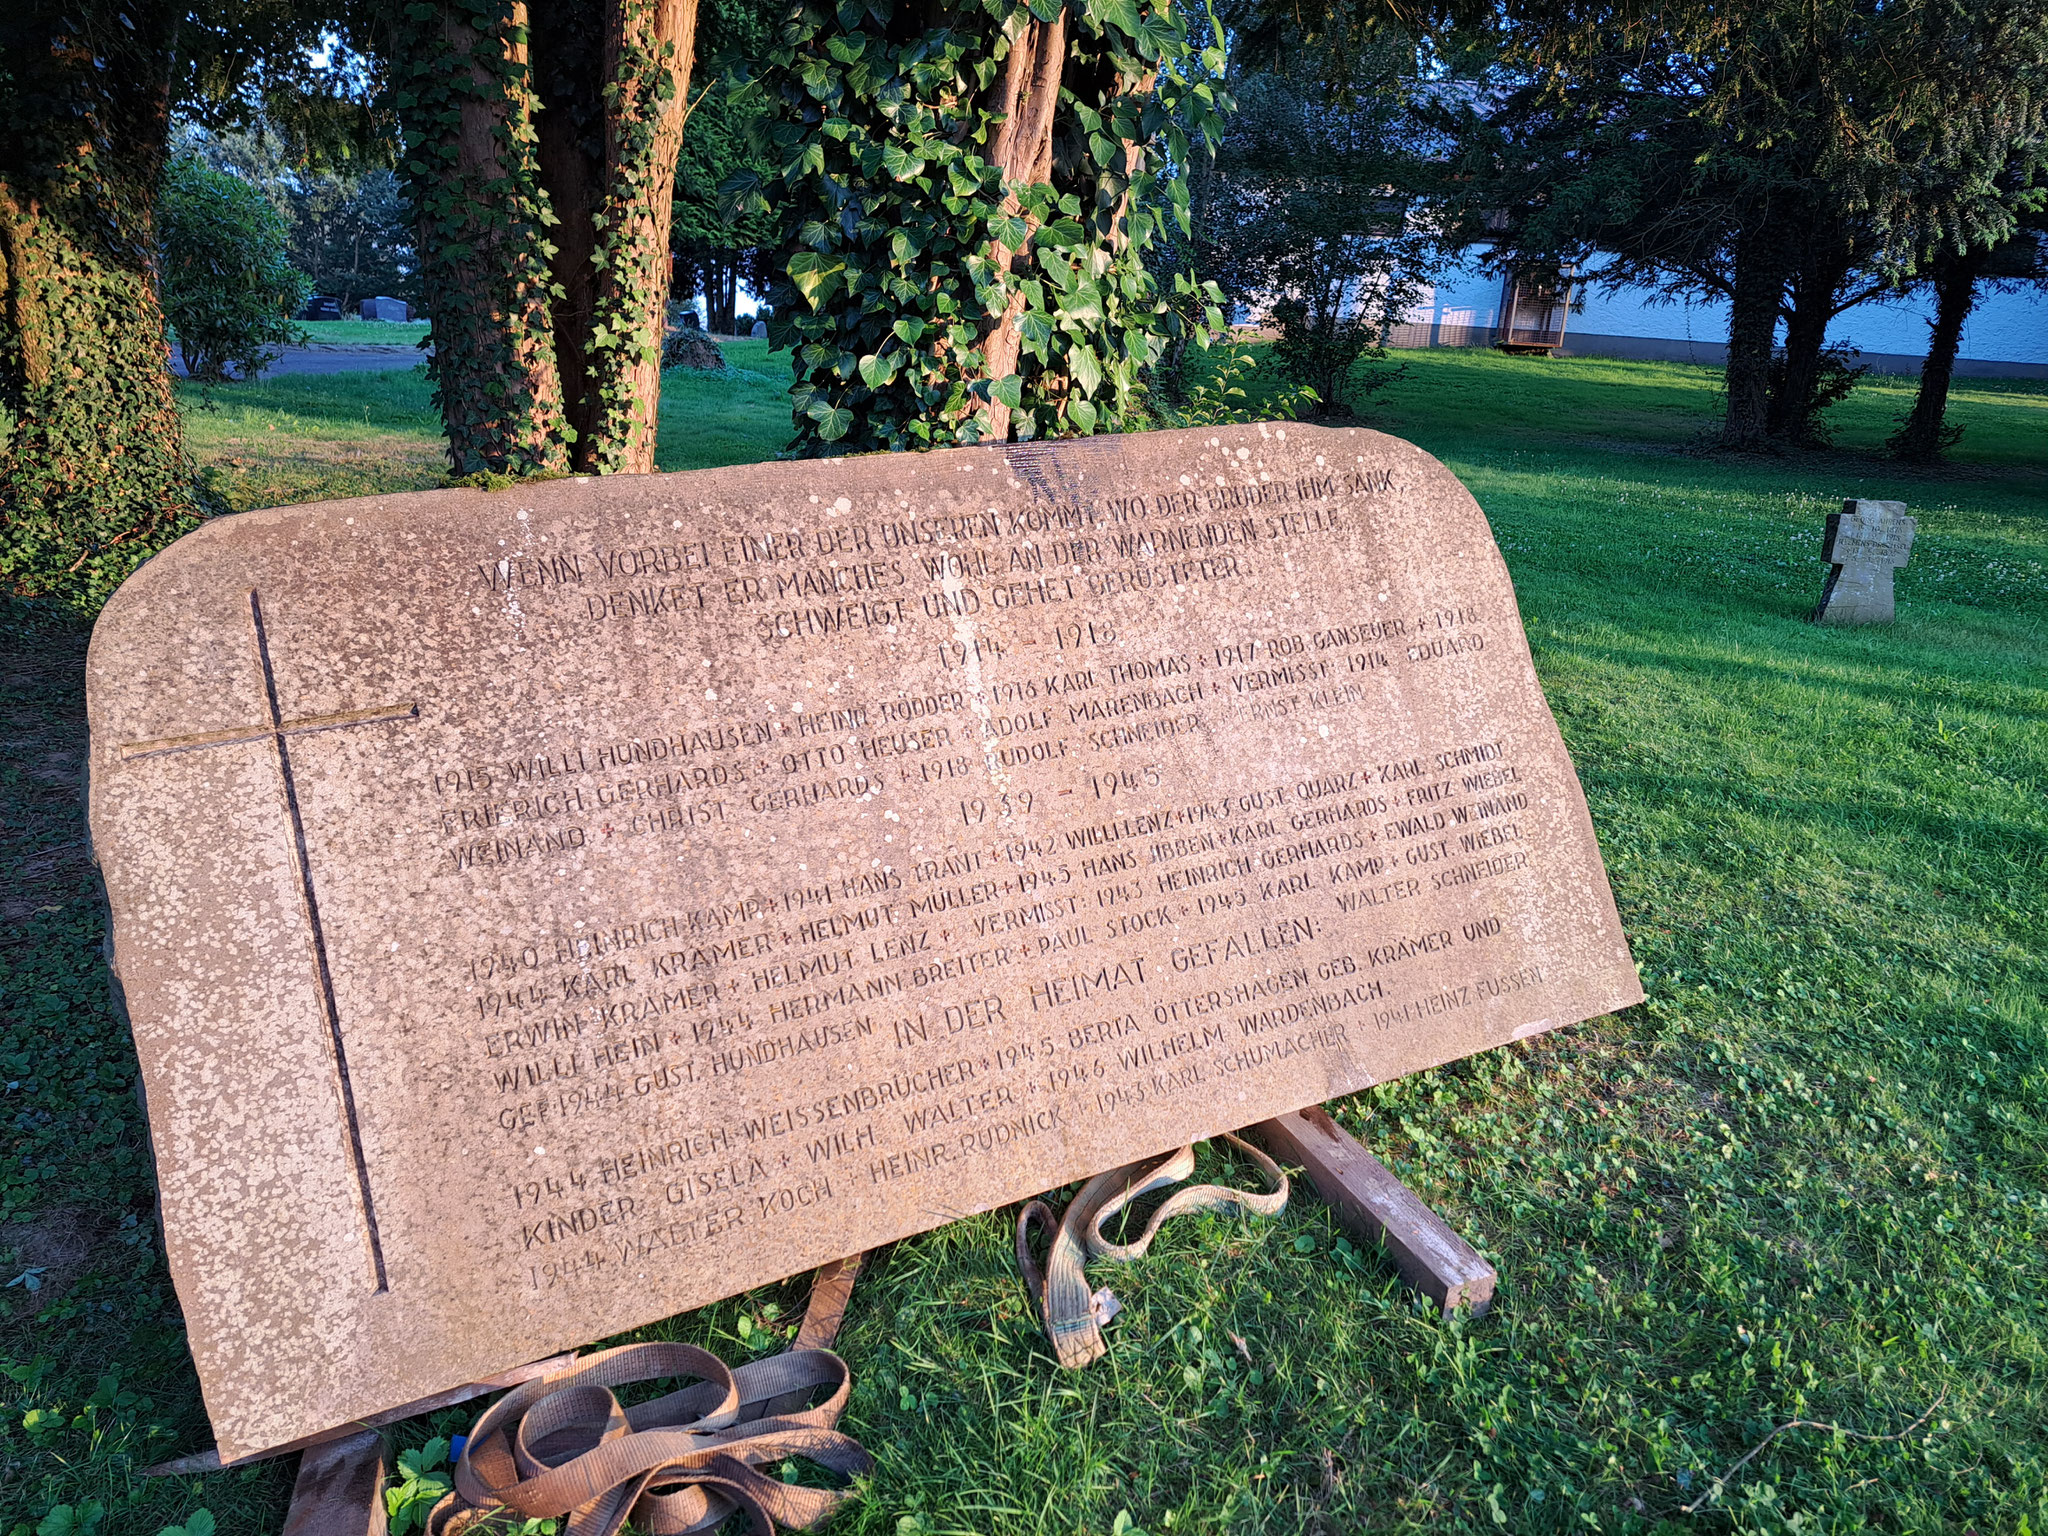 WENN VORBEI EINER DER UNSEREN KOMMT, WO DER BRUDER IHM SANK,
DENKET ER MANCHES WOHL AN DER WARNENDEN STELLE,
SCHWEIGT UND GEHET GERÜSTETER.
1914 - 1918
1915 WILLI HUNDHAUSEN + HEINR. RÖDDER + 1916 KARL THOMAS + 1917 ROB. GANSEUER + 1918
FRIERICH GERHARDS + OTTO HEUSER + ADOLF MARENBACH + VERMISST: 1914 EDUARD
WEINAND + CHRIST. GERHARDS + 1918 RUDOLF SCHNEIDER ERNST KLEIN
1939 - 1945
1940 HEINRICH KAMP + 1941 HANS TRANT + 1942 WILLI LENZ + 1943 GUST. QUARZ + KARL SCHMIDT
1944 KARL KRÄMER + HELMUT MÜLLER + 1945 HANS JIBBEN + KARL GERHARDS + FRITZ WIEBEL
ERWIN KRÄMER + HELMUT LENZ + VERMISST: 1943 HEINRICH GERHARDS + EWALD WEINAND
WILLI HEIN + 1944 HERMANN BREITER + PAUL STOCK + 1945 KARL KAMP + GUST. WIEBEL
GEF. 1944 GUST. HUNDHAUSEN IN DER HEIMAT GEFALLEN: WALTER SCHNEIDER
1944 HEINRICH WEISSENBRÜCHER + 1945 BERTA ÖTTERSHAGEN GEB. KRÄMER UND
KINDER GISELA + WILH. WALTER + 1946 WILHELM WARDENBACH.
1944 WALTER KOCH + HEINR. RUDNICK + 1943 KARL SCHUMACHER + 1941 HEINZ FUSSEN